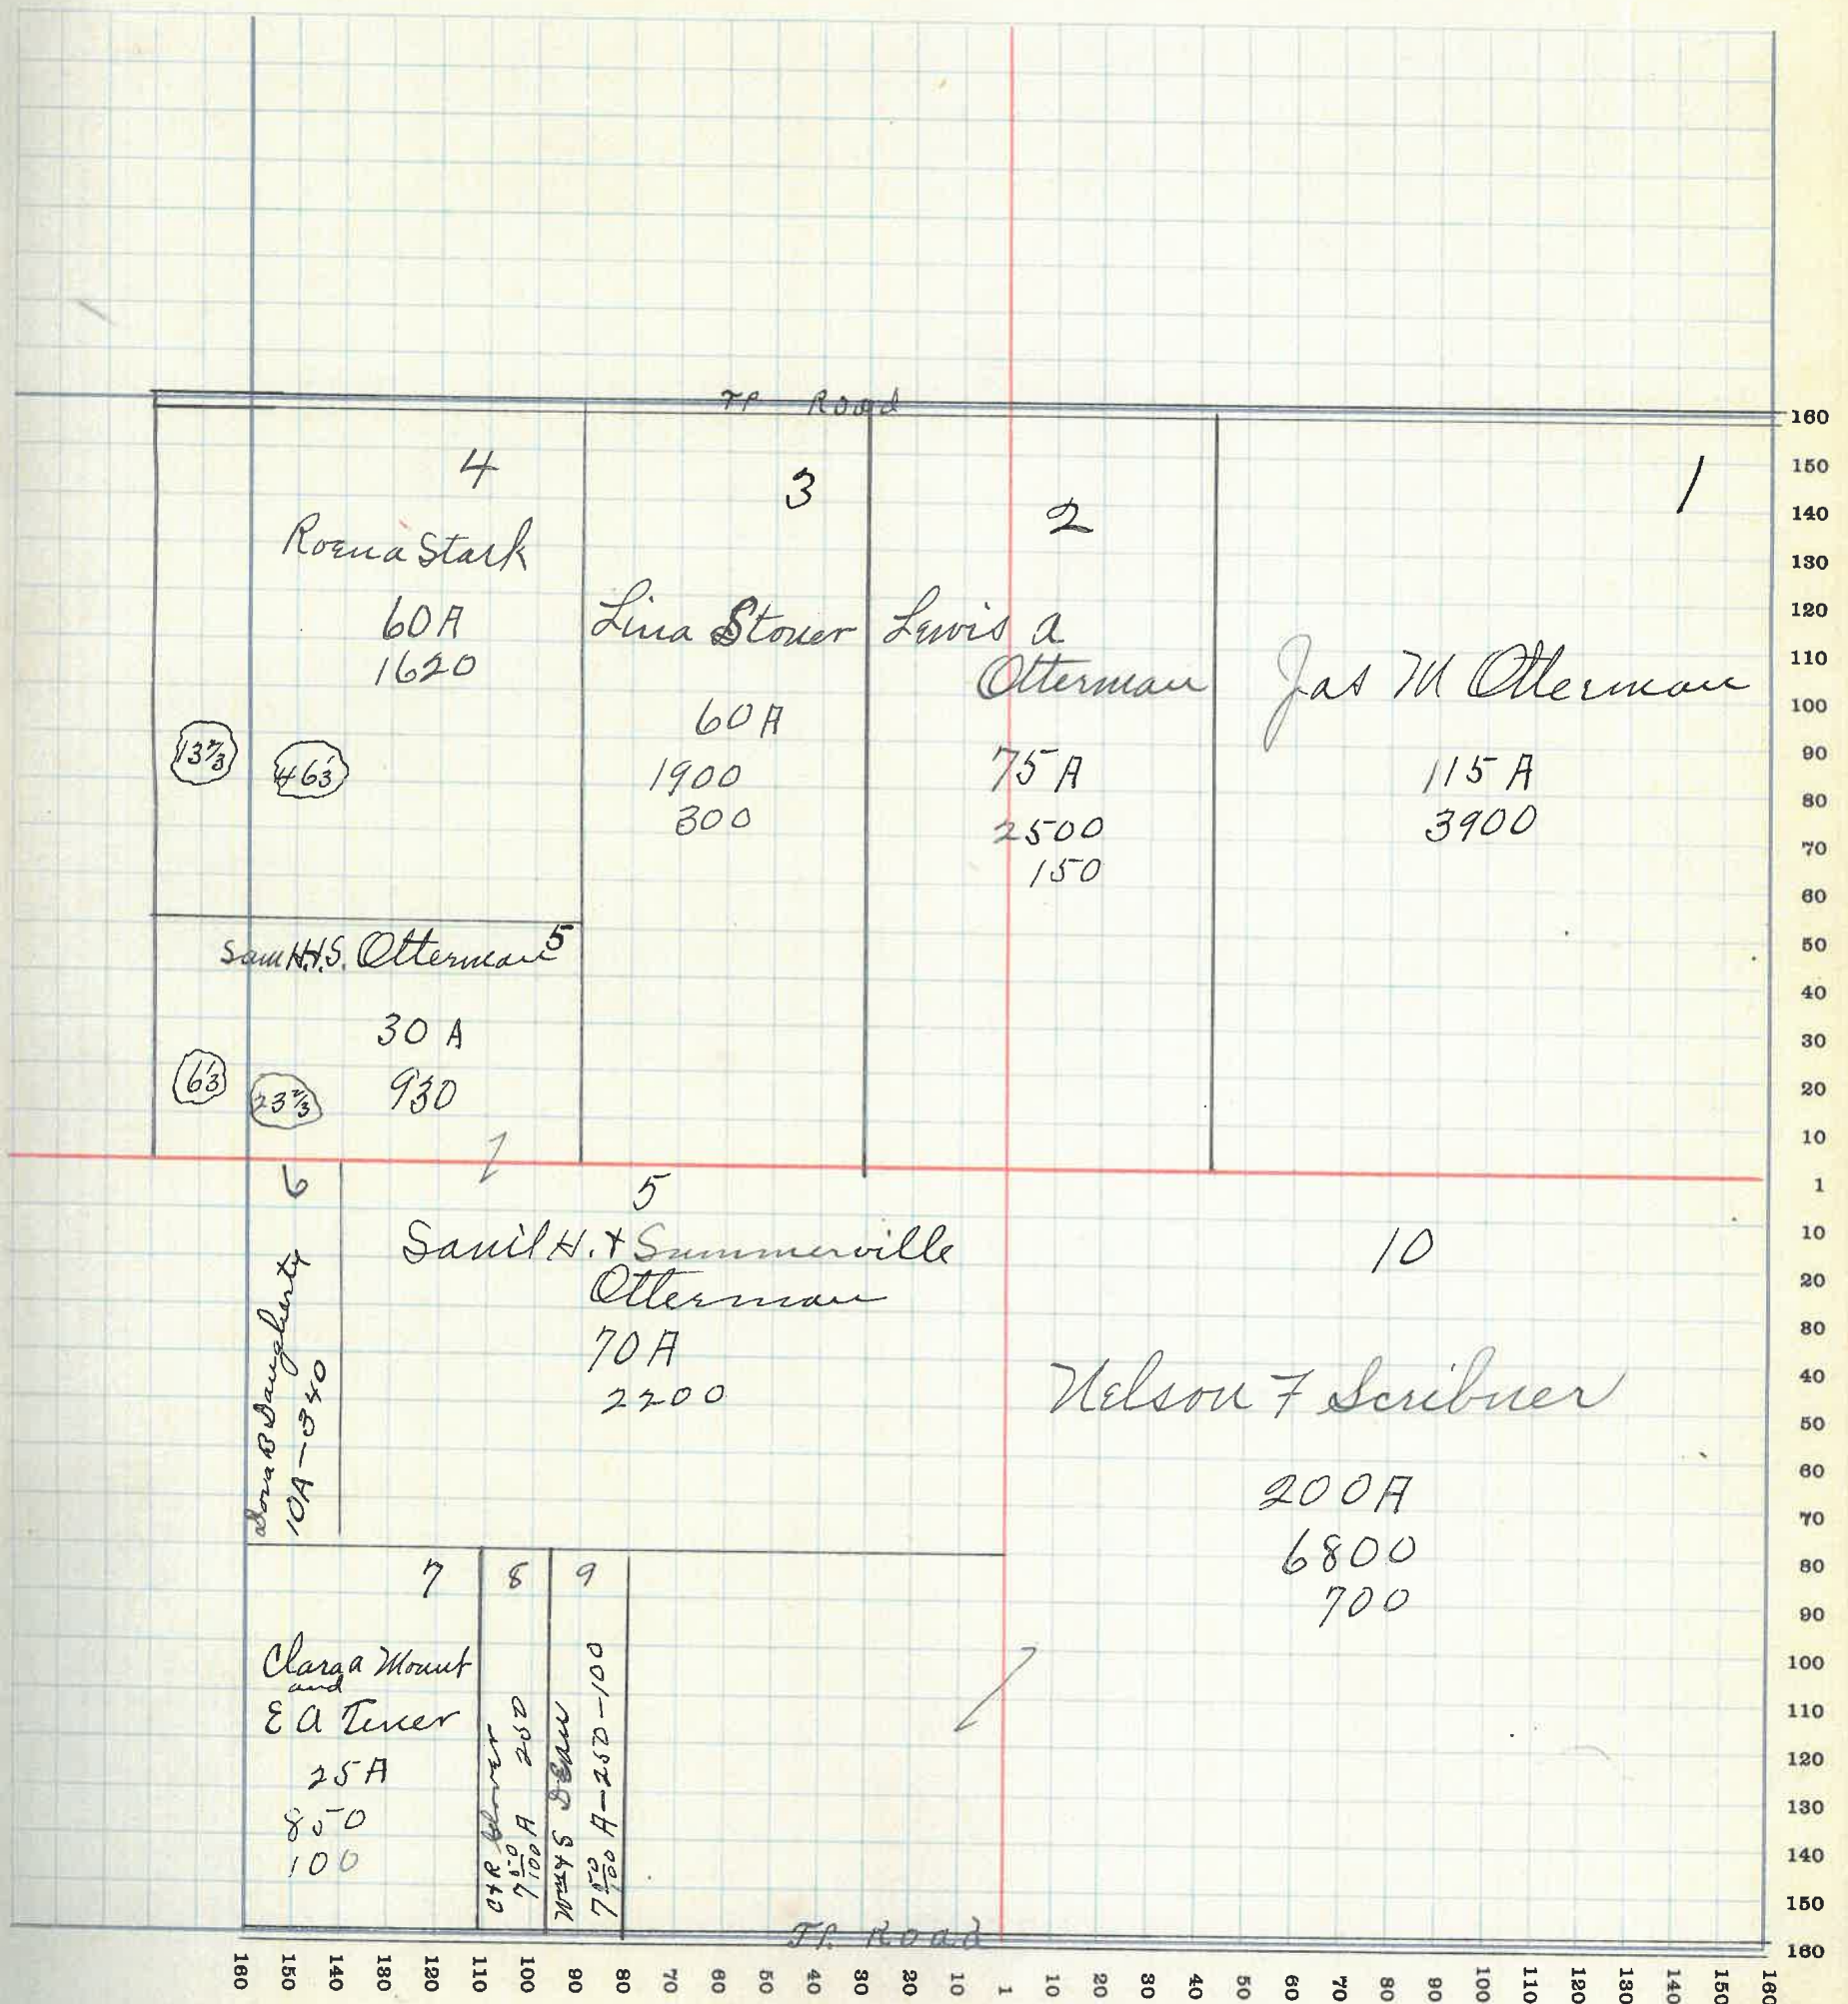 TP Road
4
Roena Stark
60A
1620
13⅔
46⅓
3
Lina Stoner
60A
1900
300
2
Lewis A
Otterman
75A
2500
150
1
Jas M Otterman
115A
3900
Sam H.S. Otterman 5
30 A
930
6⅓
23⅔
6
10A-340
5
Sam'l H. & Summerville
Otterman
70A
2200
10
Nelson F Scribner
200A
6800
700
7
Clara A Mount
and
E A Tener
25A
850
100
8
250
9
7 50/100 A-250-100
TP. Road
160
150
140
130
120
110
100
90
80
70
60
50
40
30
20
10
1
10
20
30
40
50
60
70
80
90
100
110
120
130
140
150
160
160 150 140 130 120 110 100 90 80 70 60 50 40 30 20 10 1 10 20 30 40 50 60 70 80 90 100 110 120 130 140 150 160